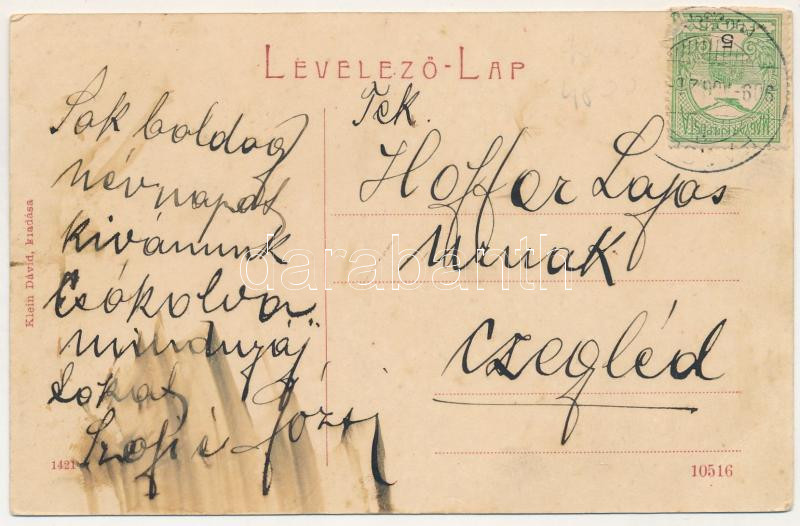 LEVELEZŐ-LAP
Sok boldog
névnapot
kivánunk
Csókolva
mindnyáj
tokat
Szofi é Józsi
Tek.
Hoffer Lajos
Urnak
Czegléd
Klein Dávid, kiadása
1421
10516
5
MAGYAR KIR. POSTA
darabanth